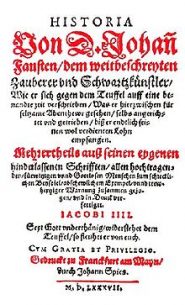 HISTORIA
Von D. Johañ
Fausten/dem weitbeschreyten
Zauberer vnd Schwartzkünstler/
Wie er sich gegen dem Teuffel auff eine be-
nandte zeit verschrieben/Was er hierzwischen für
seltzame Abenthewr gesehen/selbs angerich-
tet vnd getrieben/biß er endtlich sei-
nen wol verdienten Lohn
empfangen.
Mehrertheils auß seinen eygenen
hinderlassenen Schrifften/allen hochtragen-
den/fürwitzigen vnd Gottlosen Menschen zum schrecklichen
Beyspiel/abschewlichem Exempel/vnd trew-
hertziger Warnung zusammen gezo-
gen/vnd in Druck ver-
fertiget.
IACOBI IIII.
Seyt Gott vnderthänig/widerstehet dem
Teuffel/so fleuhet er von euch.
CVM GRATIA ET PRIVILEGIO.
Gedruckt zu Franckfurt am Mayn/
durch Johann Spies.
M. D. LXXXVII.